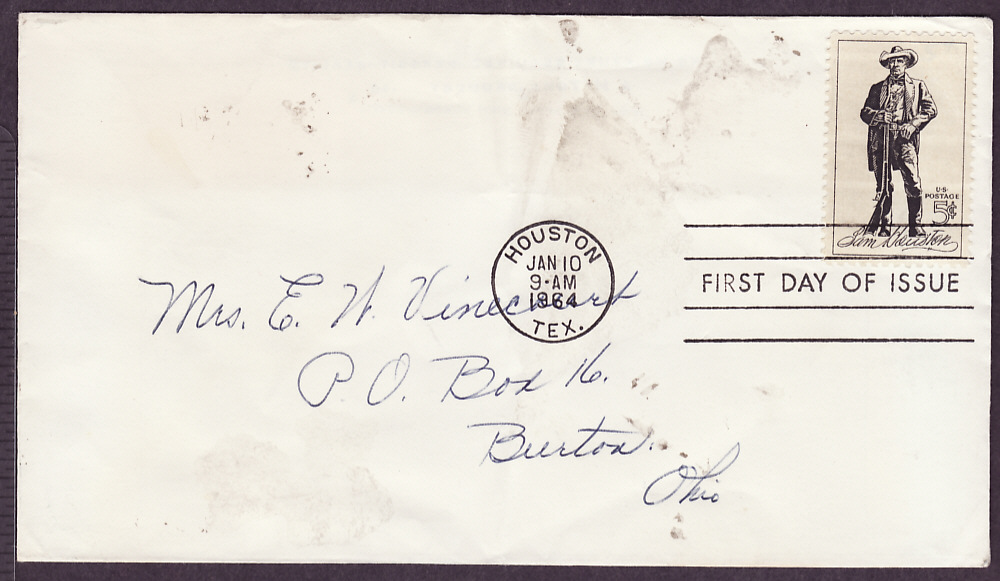 U·S·
POSTAGE
5¢
Sam Houston
HOUSTON
JAN 10
9·AM
1964
TEX.
FIRST DAY OF ISSUE
Mrs. E. W.
P.O. Box 16.
Burton.
Ohio